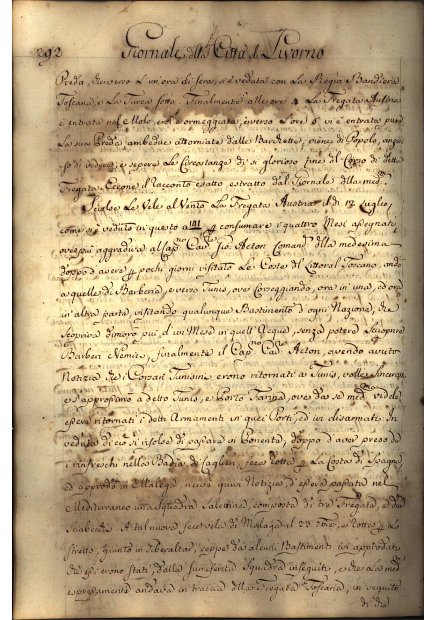 292 Giornale della Città di Livorno
Preda, e verso l'un'ora di sera, si è veduta con la Regia Bandiera
Toscana, e la Turca sotto. Finalmente alle ore 4 la Fregata Austria
è entrata nel Molo, ed ormeggiata, e verso l'ore 5 vi è entrata pure
la sua Preda, ambedue attorniate dalle Barchette, piene di Popolo,
di vedere, e sapere le Circostanze di sì glorioso fine del Corso di detta
Fregata. Eccone il Racconto esatto estratto dal Giornale della med.
Sciolse le Vele al Vento la Fregata Austria il dì 12 Luglio,
come si è veduto in questo a 181 p consumare i quattro Mesi assegnati
ove più aggradura al Cap. Cav. Gio: Acton Comand. della medesima
doppo d'avere p pochi giorni visitato le Coste del Littoral Toscano, andò
a quelle di Barberia, e verso Tunis, ove Correggiando, ora in una, ed ora
in altra parte, visitando qualunque Bastimento d'ogni Nazione, che
scopriva dimorò più d'un Mese in quell'Acque, senza potere scuoprire
Barberi Nemici, finalmente il Cap. Cav. Acton, avendo avuto
Notizia che i Corsari Tunisini erono ritornati a Tunis, volle
e s'approssimò a detto Tunis, e Porto Farina, ove da se med. vidde
essere ritornati i detti Armamenti in quei Porti, ed in disarmati. In
veduta di ciò si risolse di passare in Ponente, doppo d'aver preso de
i rinfreschi nella Badia di Caglieri, fece rotta p la Costa di Spagna,
ed approdò in Malaga, ricevè quivi Notizia d'essere passata nel
Mediterraneo una Squadra Salettina, composta di tre Fregate, e due
Sciabecchi. A tal nuova fece vela da Malaga il 29 7bre, e rotta p lo
Stretto, giunto in Gibraltar, seppe da alcuni Bastimenti ivi approdati,
che essi erono stati dalla surriferita Squadra inseguiti, e che la med.
espressamente andava in traccia della Fregata Toscana, in seguito
di che